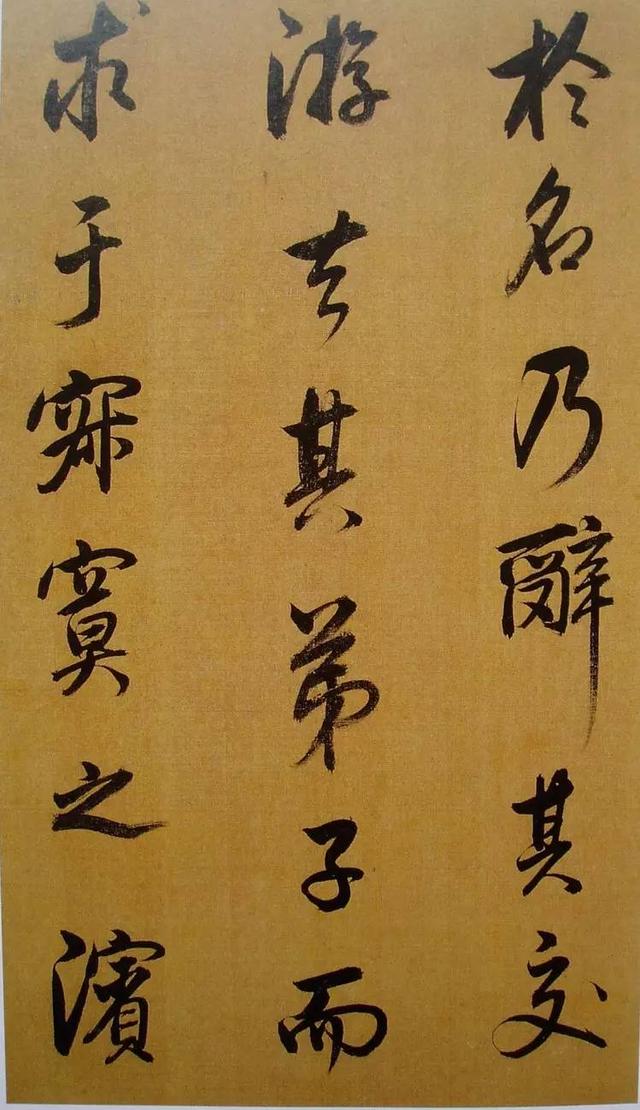 於名乃辭其交
游去其弟子而
求于寂寞之濱